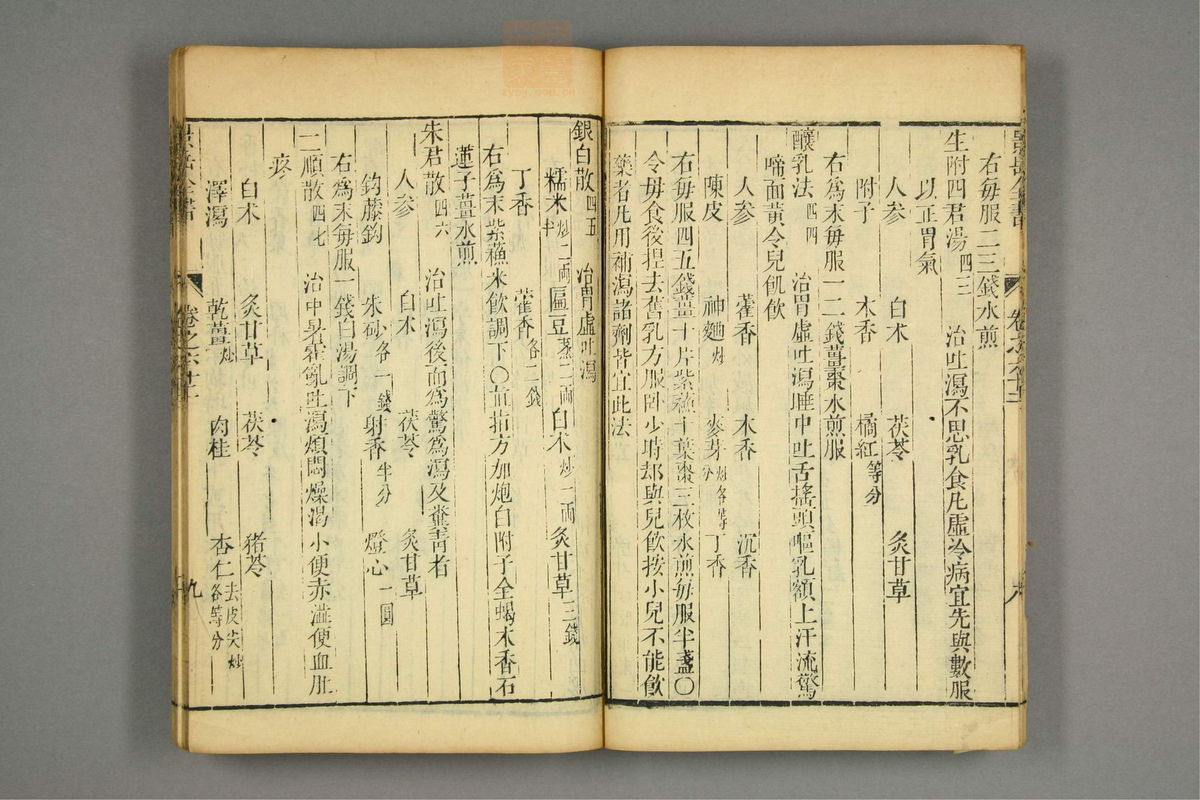 右每服二三錢水煎
生附四君湯四三 治吐瀉不思乳食凡虛冷病宜先與數服
以正胃氣
人參 白术 茯苓 炙甘草
附子 木香 橘紅等分
右爲末每服一二錢薑棗水煎服
釀乳法四四 治胃虛吐瀉睡中吐舌搖頭嘔乳額上汗流驚
啼面黃令兒飢飲
人參 藿香 木香 沉香
陳皮 神麯炒 麥芽炒各等分 丁香
右每服四五錢薑十片紫蘇十葉棗三枚水煎每服半盞〇
令母食後捏去舊乳方服卧少時却與兒飲按小兒不能飲
藥者凡用補瀉諸劑皆宜此法
景岳全書 卷之六十二
銀白散四五 治胃虛吐瀉
糯米炒二兩半 扁豆蒸二兩 白术炒一兩 炙甘草三錢
丁香 藿香各二錢
右爲末紫蘓米飲調下〇直指方加炮白附子全蝎木香石
蓮子薑水煎
朱君散四六 治吐瀉後而爲驚爲瀉及糞青者
人參 白术 茯苓 炙甘草
鈎藤鈎 朱砂各一錢 射香半分 燈心一團
右爲末每服一錢白湯調下
二順散四七 治中暑霍亂吐瀉煩悶燥渴小便赤澁便血肚
疼
白术 炙甘草 茯苓 猪苓
澤瀉 乾薑炒 肉桂 杏仁去皮尖炒各等分
景岳全書 卷之六十二 九